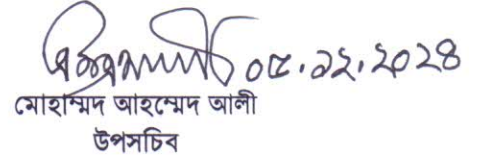 ০৫.১২.২০২৪
মোহাম্মদ আহম্মেদ আলী
উপসচিব